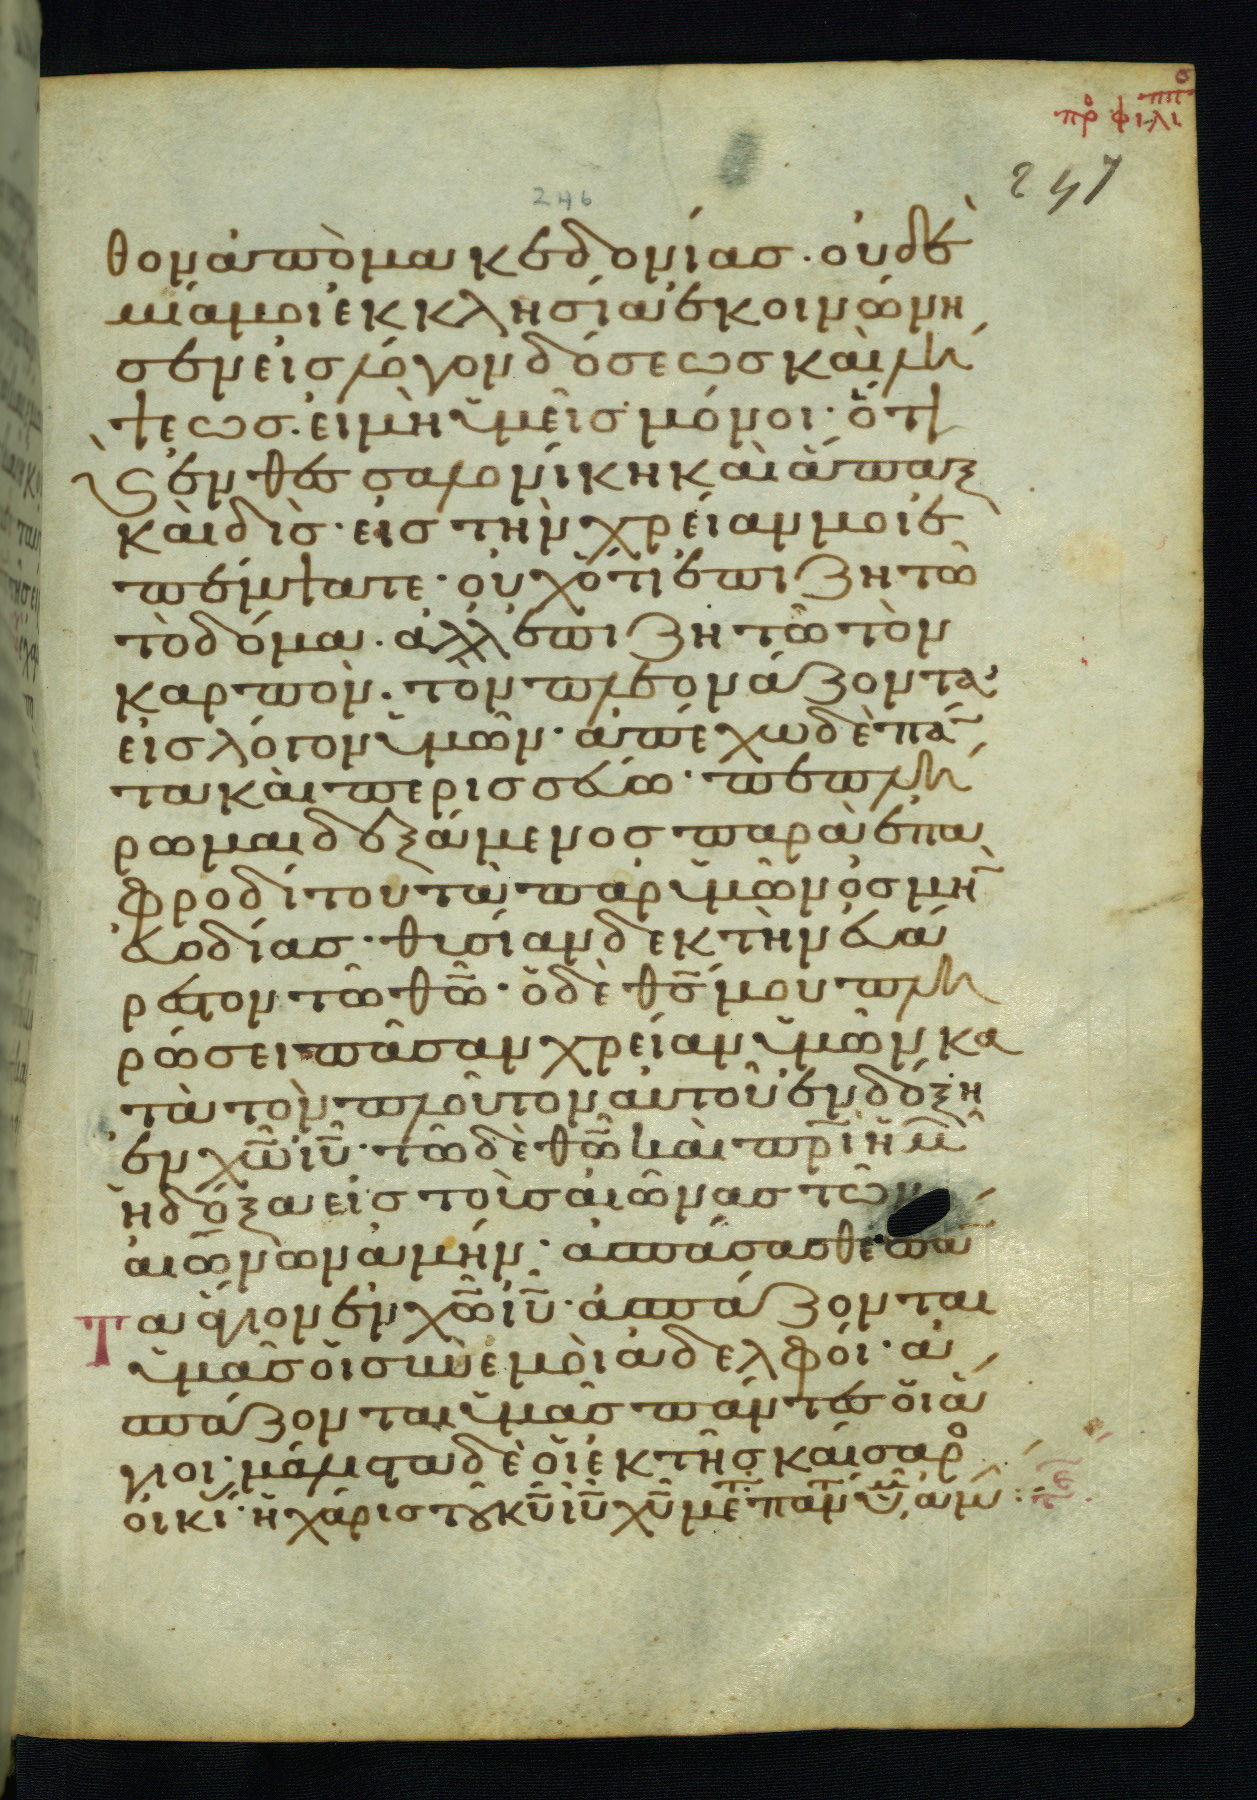 πρ̊ φιλιππ̊
247
246
θον ἀπὸ μακεδονίας· οὐδε
μία μοι ἐκκλησία ἐκοινώνη
σεν εἰς λόγον δόσεως καὶ λή
ψεως· εἰ μὴ ὑμεῖς μόνοι· ὅτι
ϗ ἐν θεσσαλονίκη καὶ ἅπαξ
καὶ δὶς· εἰς τὴν χρείαν μοι ἐ
πέμψατε· οὐχ ὅτι ἐπιζητῶ
τὸ δόμα· ἀλλ' ἐπιζητῶ τὸν
καρπὸν· τὸν πλεονάζοντα
εἰς λόγον ὑμῶν· ἀπέχω δὲ πάν̄
τα καὶ περισσεύω· πεπλή
ρωμαι δεξάμενος παρὰ ἐπα
φροδίτου τὰ παρ ὑμῶν ὀσμὴ̄
εὐωδίας· θυσίαν δεκτὴν εὐά
ρεστον τῶ θ̄ῶ· ὁ δὲ θ̄ς μου πλη
ρώσει πᾶσαν χρείαν ὑμῶν κα
τὰ τὸν πλοῦτον αὐτοῦ ἐν δόξη
ἐν χ̄ῶ ἰ̄ῦ· τῶ δὲ θ̄ῶ καὶ π̄ρὶ ἡμ̄
ἡ δόξα εἰς τοὺς αἰῶνας τῶν
αἰώνων ἀμήν· ἀσπάσασθε πάν̄
τα ἅγιον ἐν χ̄ῶ ἰ̄ῦ· ἀσπάζονται
ὑμᾶς οἱ σὺν ἐμοὶ ἀδελφοί· ἀ
σπάζονται ὑμᾶς πάντες οἱ ἅ
γιοι· μάλιστα δὲ οἱ ἐκ τῆς καίσαρο
οἰκί· ἡ χάρις τοῦ κ̄ῦ ἰ̄ῦ χ̄ῦ μετ̄ πάντ̄ν ὑμ̄, ἀμήν:·
τε̄